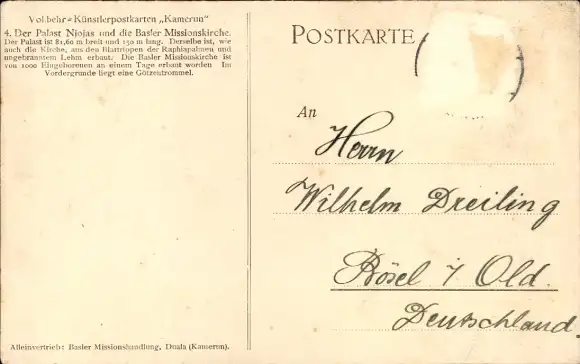 Vollbehr-Künstlerpostkarten „Kamerun“
4. Der Palast Njojas und die Basler Missionskirche.
Der Palast ist 81,60 m breit und 130 m lang. Derselbe ist, wie
auch die Kirche, aus den Blattrippen der Raphiapalmen und
ungebranntem Lehm erbaut. Die Basler Missionskirche ist
von 1000 Eingeborenen an einem Tage erbaut worden Im
Vordergrunde liegt eine Götzentrommel.
POSTKARTE
An
Herrn
Wilhelm Dreiling
Bösel i/ Old.
Deutschland.
Alleinvertrieb: Basler Missionshandlung, Duala (Kamerun).